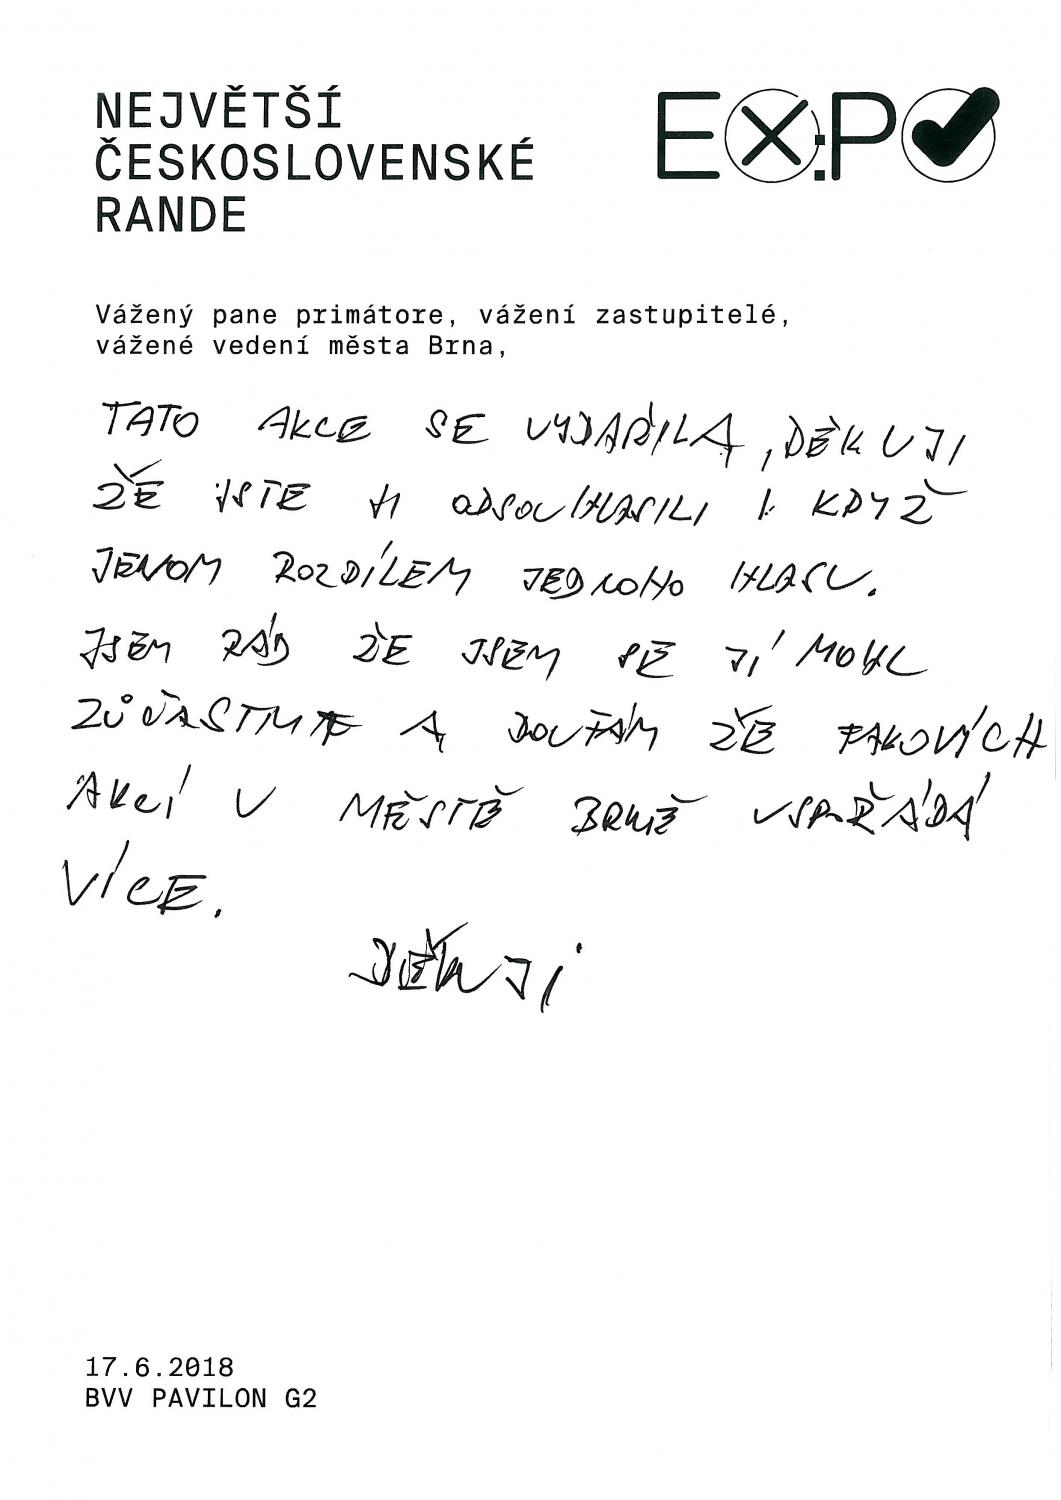 NEJVĚTŠÍ
ČESKOSLOVENSKÉ
RANDE
EX:PO
Vážený pane primátore, vážení zastupitelé,
vážené vedení města Brna,
TATO AKCE SE VYDAŘILA, DĚKUJI
ŽE JSTE JI ODSOUHLASILI I KDYŽ
JENOM ROZDÍLEM JEDNOHO HLASU.
JSEM RÁD ŽE JSEM SE JÍ MOHL
ZÚČASTNIT A DOUFÁM ŽE TAKOVÝCH
AKCÍ V MĚSTĚ BRNĚ USPOŘÁDÁ
VÍCE.
DĚKUJI
17.6.2018
BVV PAVILON G2